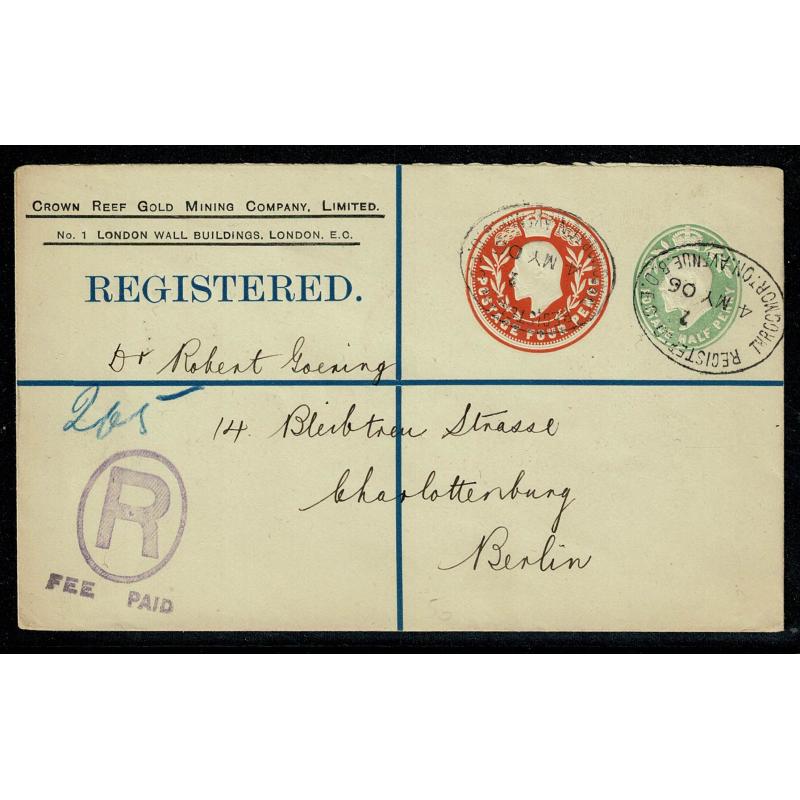 CROWN REEF GOLD MINING COMPANY, LIMITED.
No. 1 LONDON WALL BUILDINGS, LONDON, E.C.
REGISTERED.
POSTAGE FOUR PENCE
4 MY 0
2
HALF PENNY
REGISTERED THROGMORTON AVENUE B.O.
4 MY 06
2
Dr Robert Goering
265
14 Bleibtreu Strasse
Charlottenburg
Berlin
R
FEE PAID